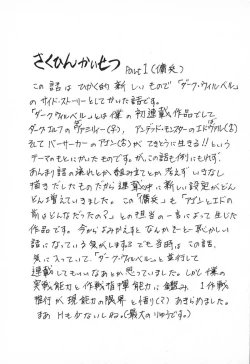 さくひんかいせつ
Part I (傭兵)
この話はひかく的新しいもので「ダーク・ウィルベル」
のサイド・ストーリーとしてかいた話です。
「ダーク・ウィルベル」とは僕の初連載作品でして
ダークエルフのヴァミリィー(♀)、アンデッド・モンスターのエドヴァル(♂)
そしてバーサーカーのアゴン(♂)がてきとうに生きる!!という
テーマのもとにかいたものですが、この話も例にもれず、
あんまり話の流れとか組み立てとか考えずいきなし
描きだしたものだから連載中に新しい設定がどん
どん増えていきました。この「傭兵」も「アゴンとエドの
前はどんなだったの?」との担当の一言によって生じた
作品です。今からよみかえすとなんかきーとー恥かしい
話になっていう気がしますでも当時はこの話、
気に入っていて「ダーク・ウィルベル」と並行して
連載してもいいなあとか思っていました。しかし僕の
実戦能力と作戦指揮能力に鑑み、1作戦
推行が現能力の限界と悟り(?)あきらめました。
まあHもなかないしね。(最大のりゆうです。)